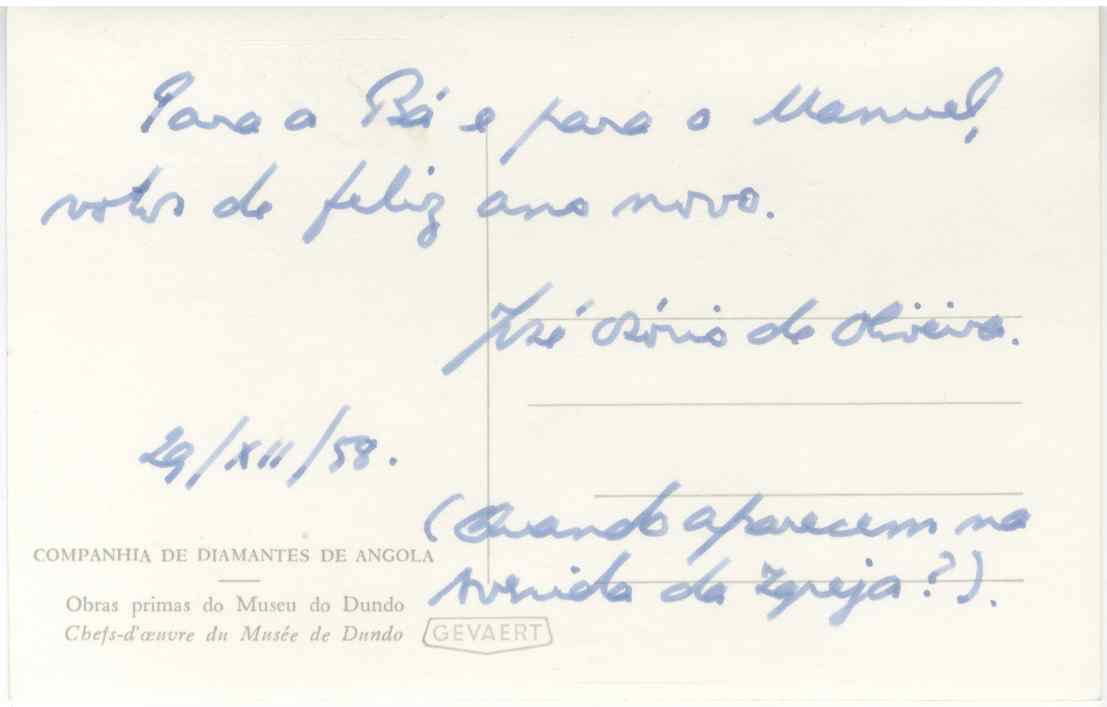 Para a Bá e para o Manuel,
votos de feliz ano novo.
José Osório de Oliveira.
29/XII/58.
(Quando aparecem na
Avenida da Igreja?).
COMPANHIA DE DIAMANTES DE ANGOLA
Obras primas do Museu do Dundo
Chefs-d'œuvre du Musée de Dundo
GEVAERT